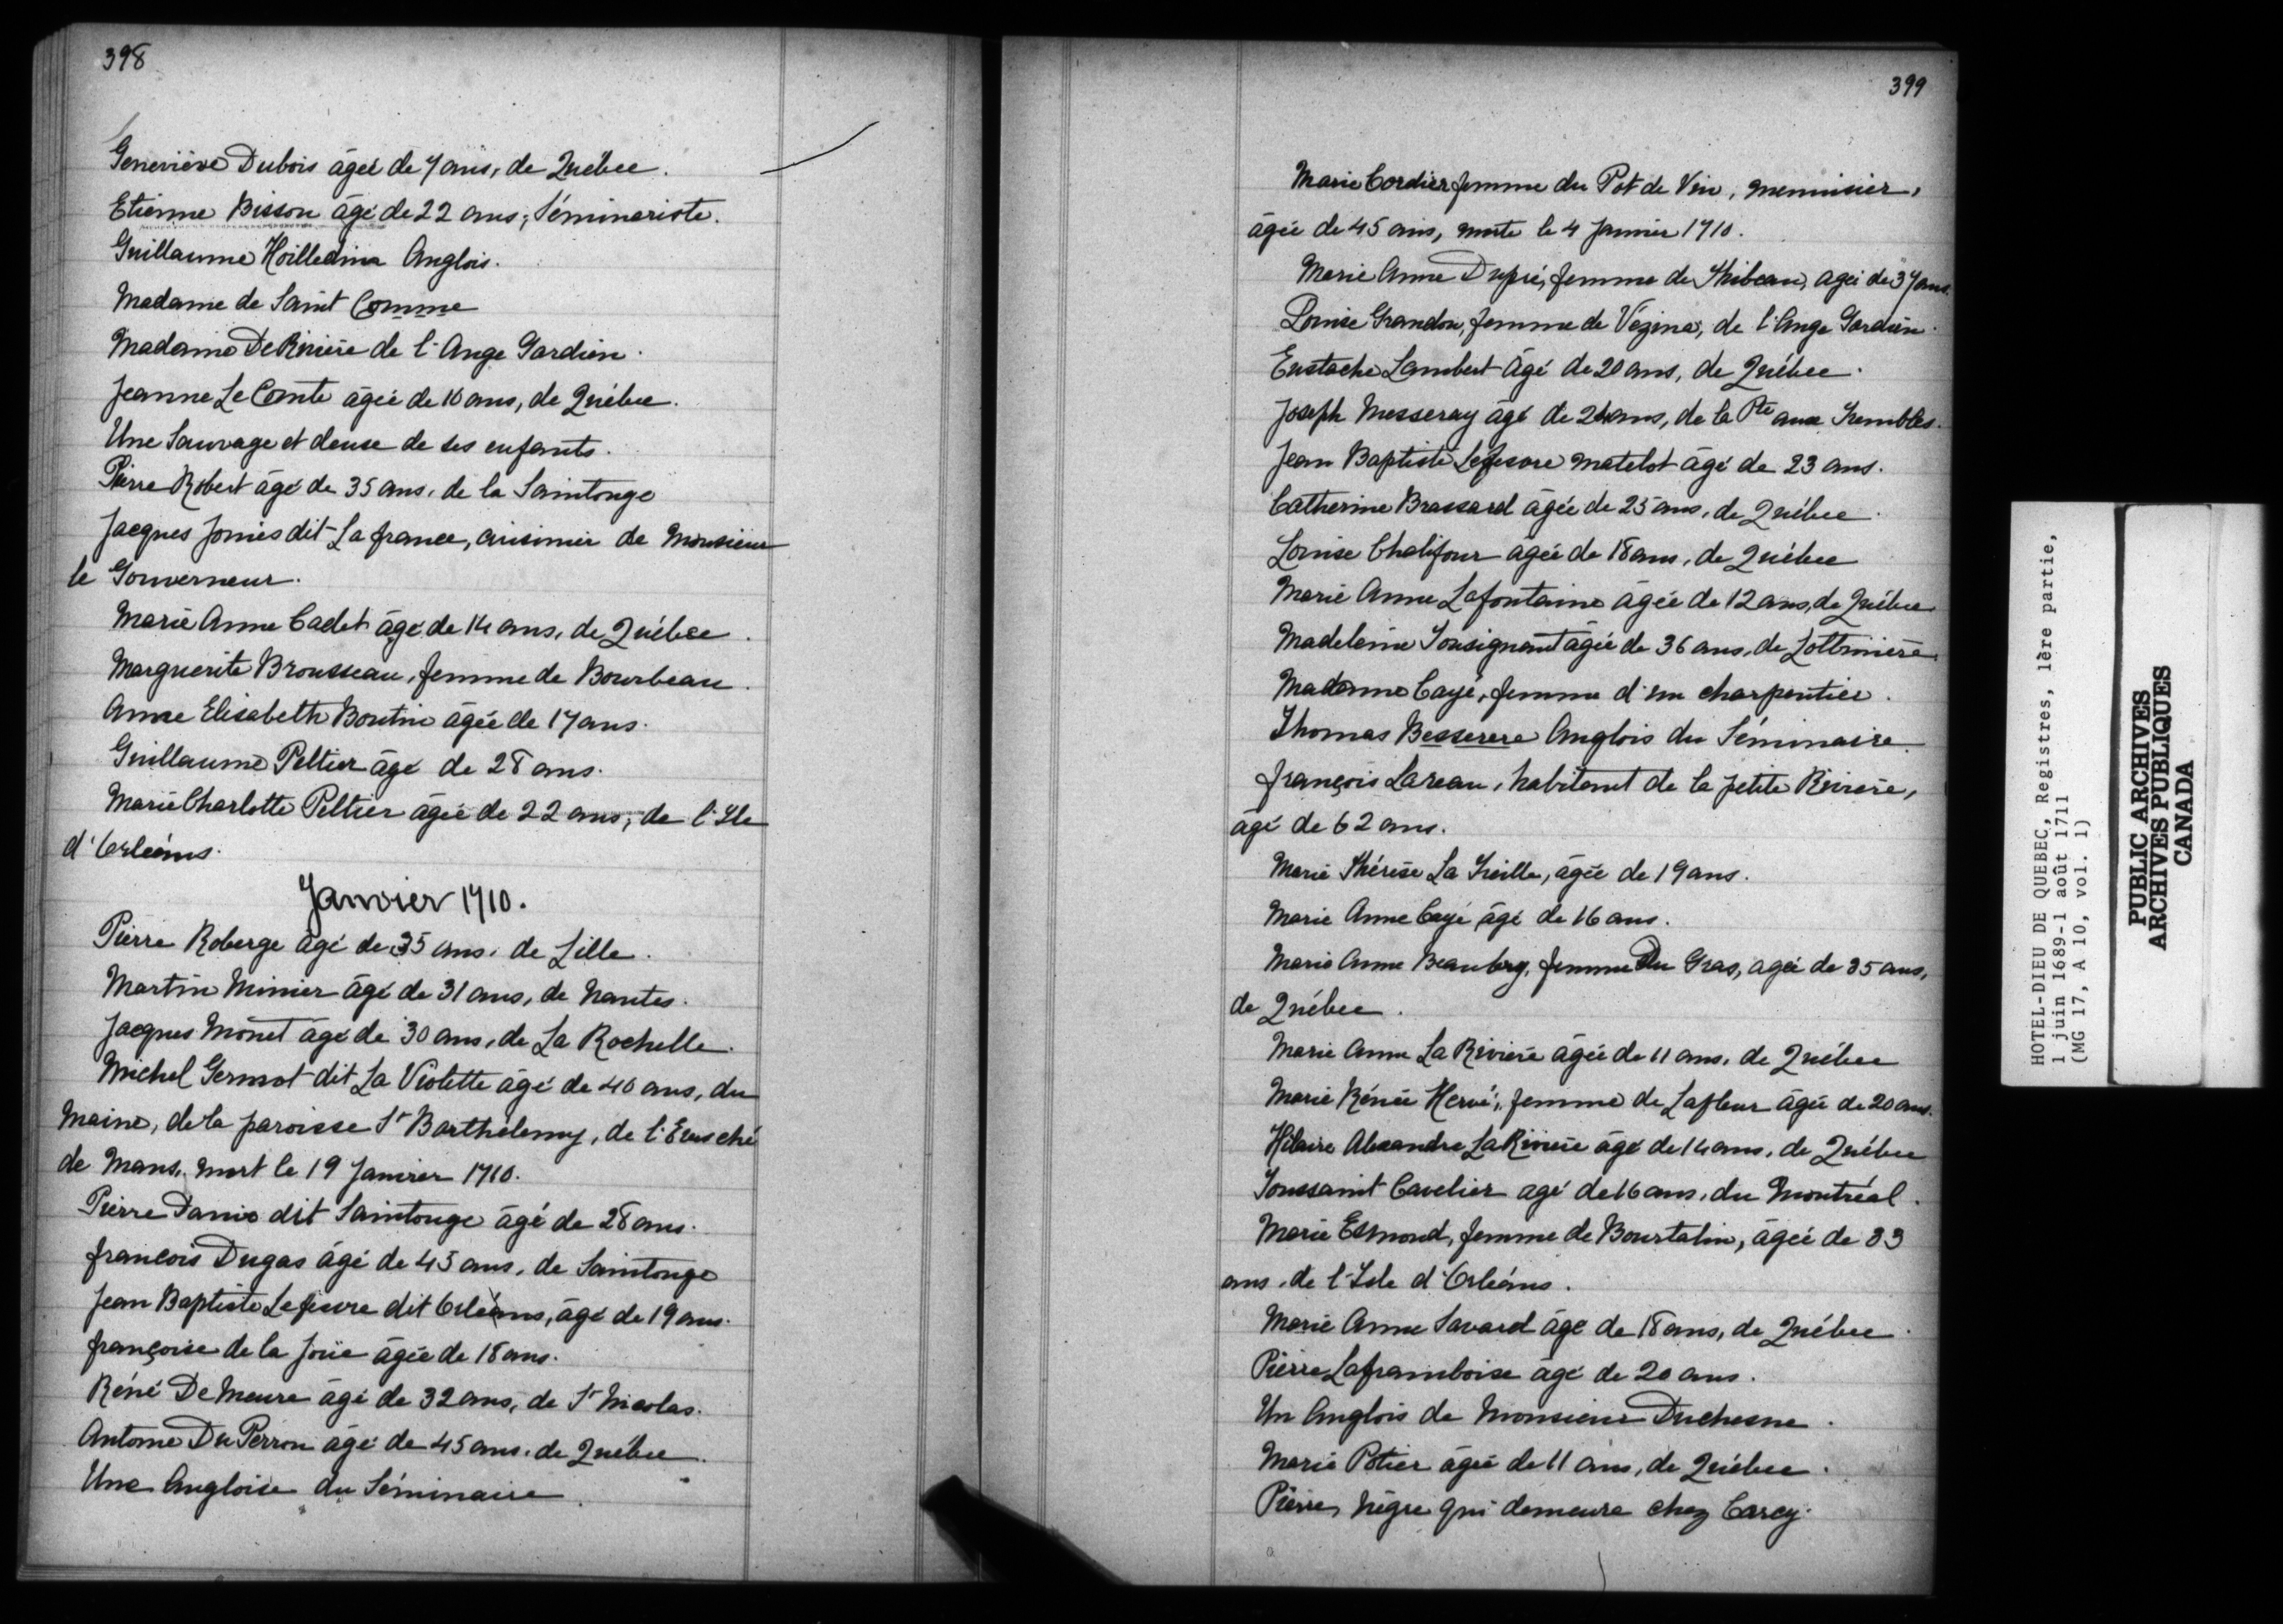 398
Geneviève Dubois âgée de 7 ans, de Québec.
Etienne Bisson âgé de 22 ans, Séminariste.
Guillaume Hoilledina Anglois.
Madame de Saint Comme
Madame De Rivière de l'Ange Gardien.
Jeanne Le Comte âgée de 10 ans, de Québec.
Une Sauvage et deuse de ses enfants.
Pierre Robert âgé de 35 ans, de la Saintonge
Jacques Jomès dit La france, cuisinier de Monsieur
le Gouverneur.
Marie Anne Cadet âgé de 14 ans, de Québec.
Marguerite Brousseau, femme de Bourbeau.
Anne Elisabeth Boutin âgée de 17 ans.
Guillaume Peltier âgé de 28 ans.
Marie Charlotte Peltier âgée de 22 ans, de l'Ile
d'Orléans.
Janvier 1710.
Pierre Roberge âgé de 35 ans, de Lille.
Martin Minier âgé de 31 ans, de Nantes.
Jacques Monet âgé de 30 ans, de La Rochelle.
Michel Germot dit La Violette âgé de 40 ans, du
Maine, de la paroisse St Barthélemy, de l'Eveché
de Mans, mort le 19 Janvier 1710.
Pierre Danio dit Saintonge âgé de 28 ans.
francois Dugas âgé de 43 ans, de Saintonge
Jean Baptiste Lefievre dit Orléans, âgé de 19 ans.
françoise de la Joüe âgée de 18 ans.
Réné De Meure âgé de 32 ans, de St Nicolas.
Antoine Du Perron âgé de 45 ans, de Québec.
Une Angloise du Séminaire.
399
Marie Cordier femme du Pot de Vin, menuisier,
âgée de 45 ans, morte le 4 Janvier 1710.
Marie Anne Dupré, femme de Thibeau, agée de 37 ans.
Louise Grandon, femme de Vézina, de l'Ange Gardien.
Eustache Lambert âgé de 20 ans, de Québec.
Joseph Messeray âgé de 24 ans, de la Pte aux Trembles.
Jean Baptiste Lefesvre matelot âgé de 23 ans.
Catherine Brassard âgée de 25 ans, de Québec.
Louise Chalifour agée de 18 ans, de Québec
Marie Anne Lafontaine âgée de 12 ans, de Québec
Madeleine Tousignant âgée de 36 ans, de Lottinière.
Madame Cayé, femme d'un charpentier.
Thomas Besserere Anglois du Séminaire.
françois Lareau, habitant de la petite Rivière,
âgé de 62 ans.
Marie Thérèse La Treille, âgée de 19 ans.
Marie Anne Cayé âgé de 16 ans.
Marie Anne Beaubry, femme Du Gras, agée de 35 ans,
de Québec.
Marie Anne La Rivière âgée de 11 ans, de Québec
Marie Rénée Hervé, femme de Lafleur âgée de 20 ans.
Hilaire Alexandre La Rivière âgé de 14 ans, de Québec
Toussaint Cavelier agé de 16 ans, du Montréal.
Marie Esmond, femme de Bourtalin, âgée de 33
ans, de l'Isle d'Orléans.
Marie Anne Savard âgé de 18 ans, de Québec.
Pierre Laframboise âgé de 20 ans.
Un Anglois de Monsieur Duchesne.
Marie Potier âgée de 11 ans, de Québec.
Pierre, Nègre qui demeure chez Carcy.
HOTEL-DIEU DE QUEBEC, Registres, 1ère partie,
1 juin 1689-1 août 1711
(MG 17, A 10, vol. 1)
PUBLIC ARCHIVES
ARCHIVES PUBLIQUES
CANADA